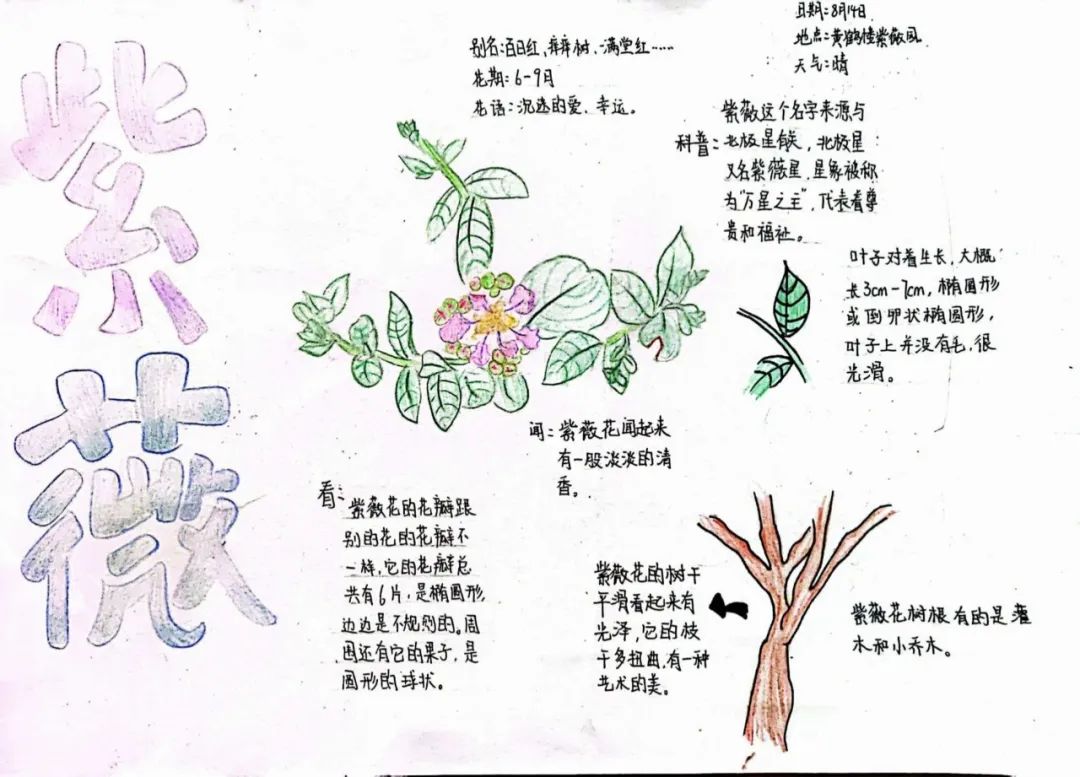 紫
薇
日期:8月14日
地点:黄鹤楼紫薇园
天气:晴
别名:百日红、痒痒树、满堂红……
花期:6-9月
花语:沉迷的爱、幸运。
紫薇这个名字来源与
科普:北极星有关,北极星
又名紫薇星,星象被称
为"万星之主",代表着尊
贵和福祉。
叶子对着生长,大概
长3cm-7cm,椭圆形
或倒卵状椭圆形,
叶子上并没有毛,很
光滑。
闻:紫薇花闻起来
有一股淡淡的清
香。
看:紫薇花的花瓣跟
别的花的花瓣不
一样,它的花瓣总
共有6片,是椭圆形,
边边是不规则的。周
围还有它的果子,是
圆形的球状。
紫薇花的树干
平滑看起来有
光泽,它的枝
干多扭曲,有一种
艺术的美。
紫薇花树根有的是灌
木和小乔木。